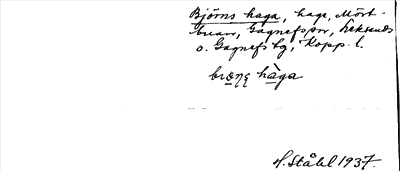 Björns haga, hage, Mört-
buan, Gagnefs sn, Leksands
o. Gagnefs tg, Kopp. l.
bi̯ɷ̠ṇș hàga
H. Ståhl 1937.